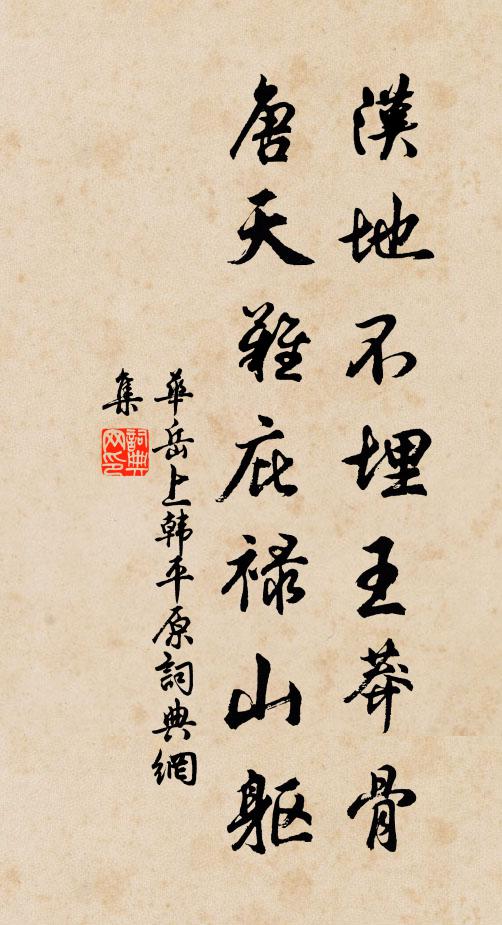 漢地不埋王莽骨
唐天難庇祿山軀
華岳上韩平原詞典網
集
詞典
网印